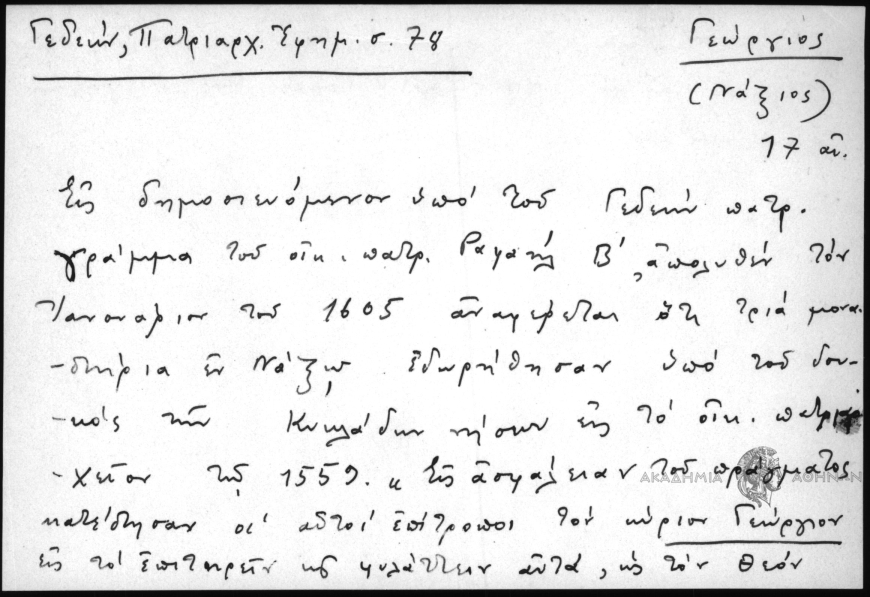 Γεδεών, Πατριαρχ. Ἐφημ. σ. 78
Γεώργιος
(Νάξιος)
17 αἰ.
Εἰς δημοσιευόμενον ὑπό τοῦ Γεδεών πατρ.
γράμμα τοῦ οἰκ. πατρ. Ραφαήλ Β΄, ἀπολυθέν τόν
Ἰανουάριον τοῦ 1605 ἀναφέρεται ὅτι τρία μονα-
-στήρια ἐν Νάξῳ ἐδωρήθησαν ὑπό τοῦ δου-
-κός τῶν Κυκλάδων νήσων εἰς τό οἰκ. πατριαρ
-χεῖον τῷ 1559. « Εἰς ἀσφάλειαν τοῦ πράγματος
κατέστησαν οἱ αὐτοί ἐπίτροποι τόν κύριον Γεώργιον
εἰς τό ἐπιτηρεῖν καί φυλάττειν αὐτά, ὡς τόν Θεόν
ΑΚΑΔΗΜΙΑ ΑΘΗΝΩΝ